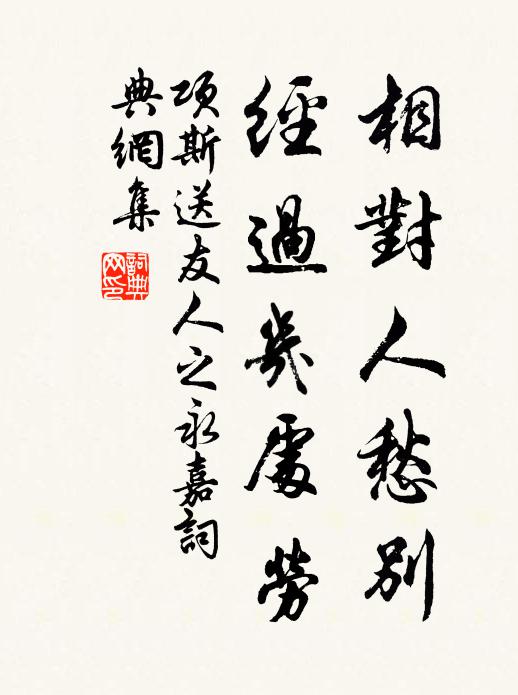 相對人愁別
經過幾處勞
項斯送友人之永嘉詞
典網集
詞典
网印